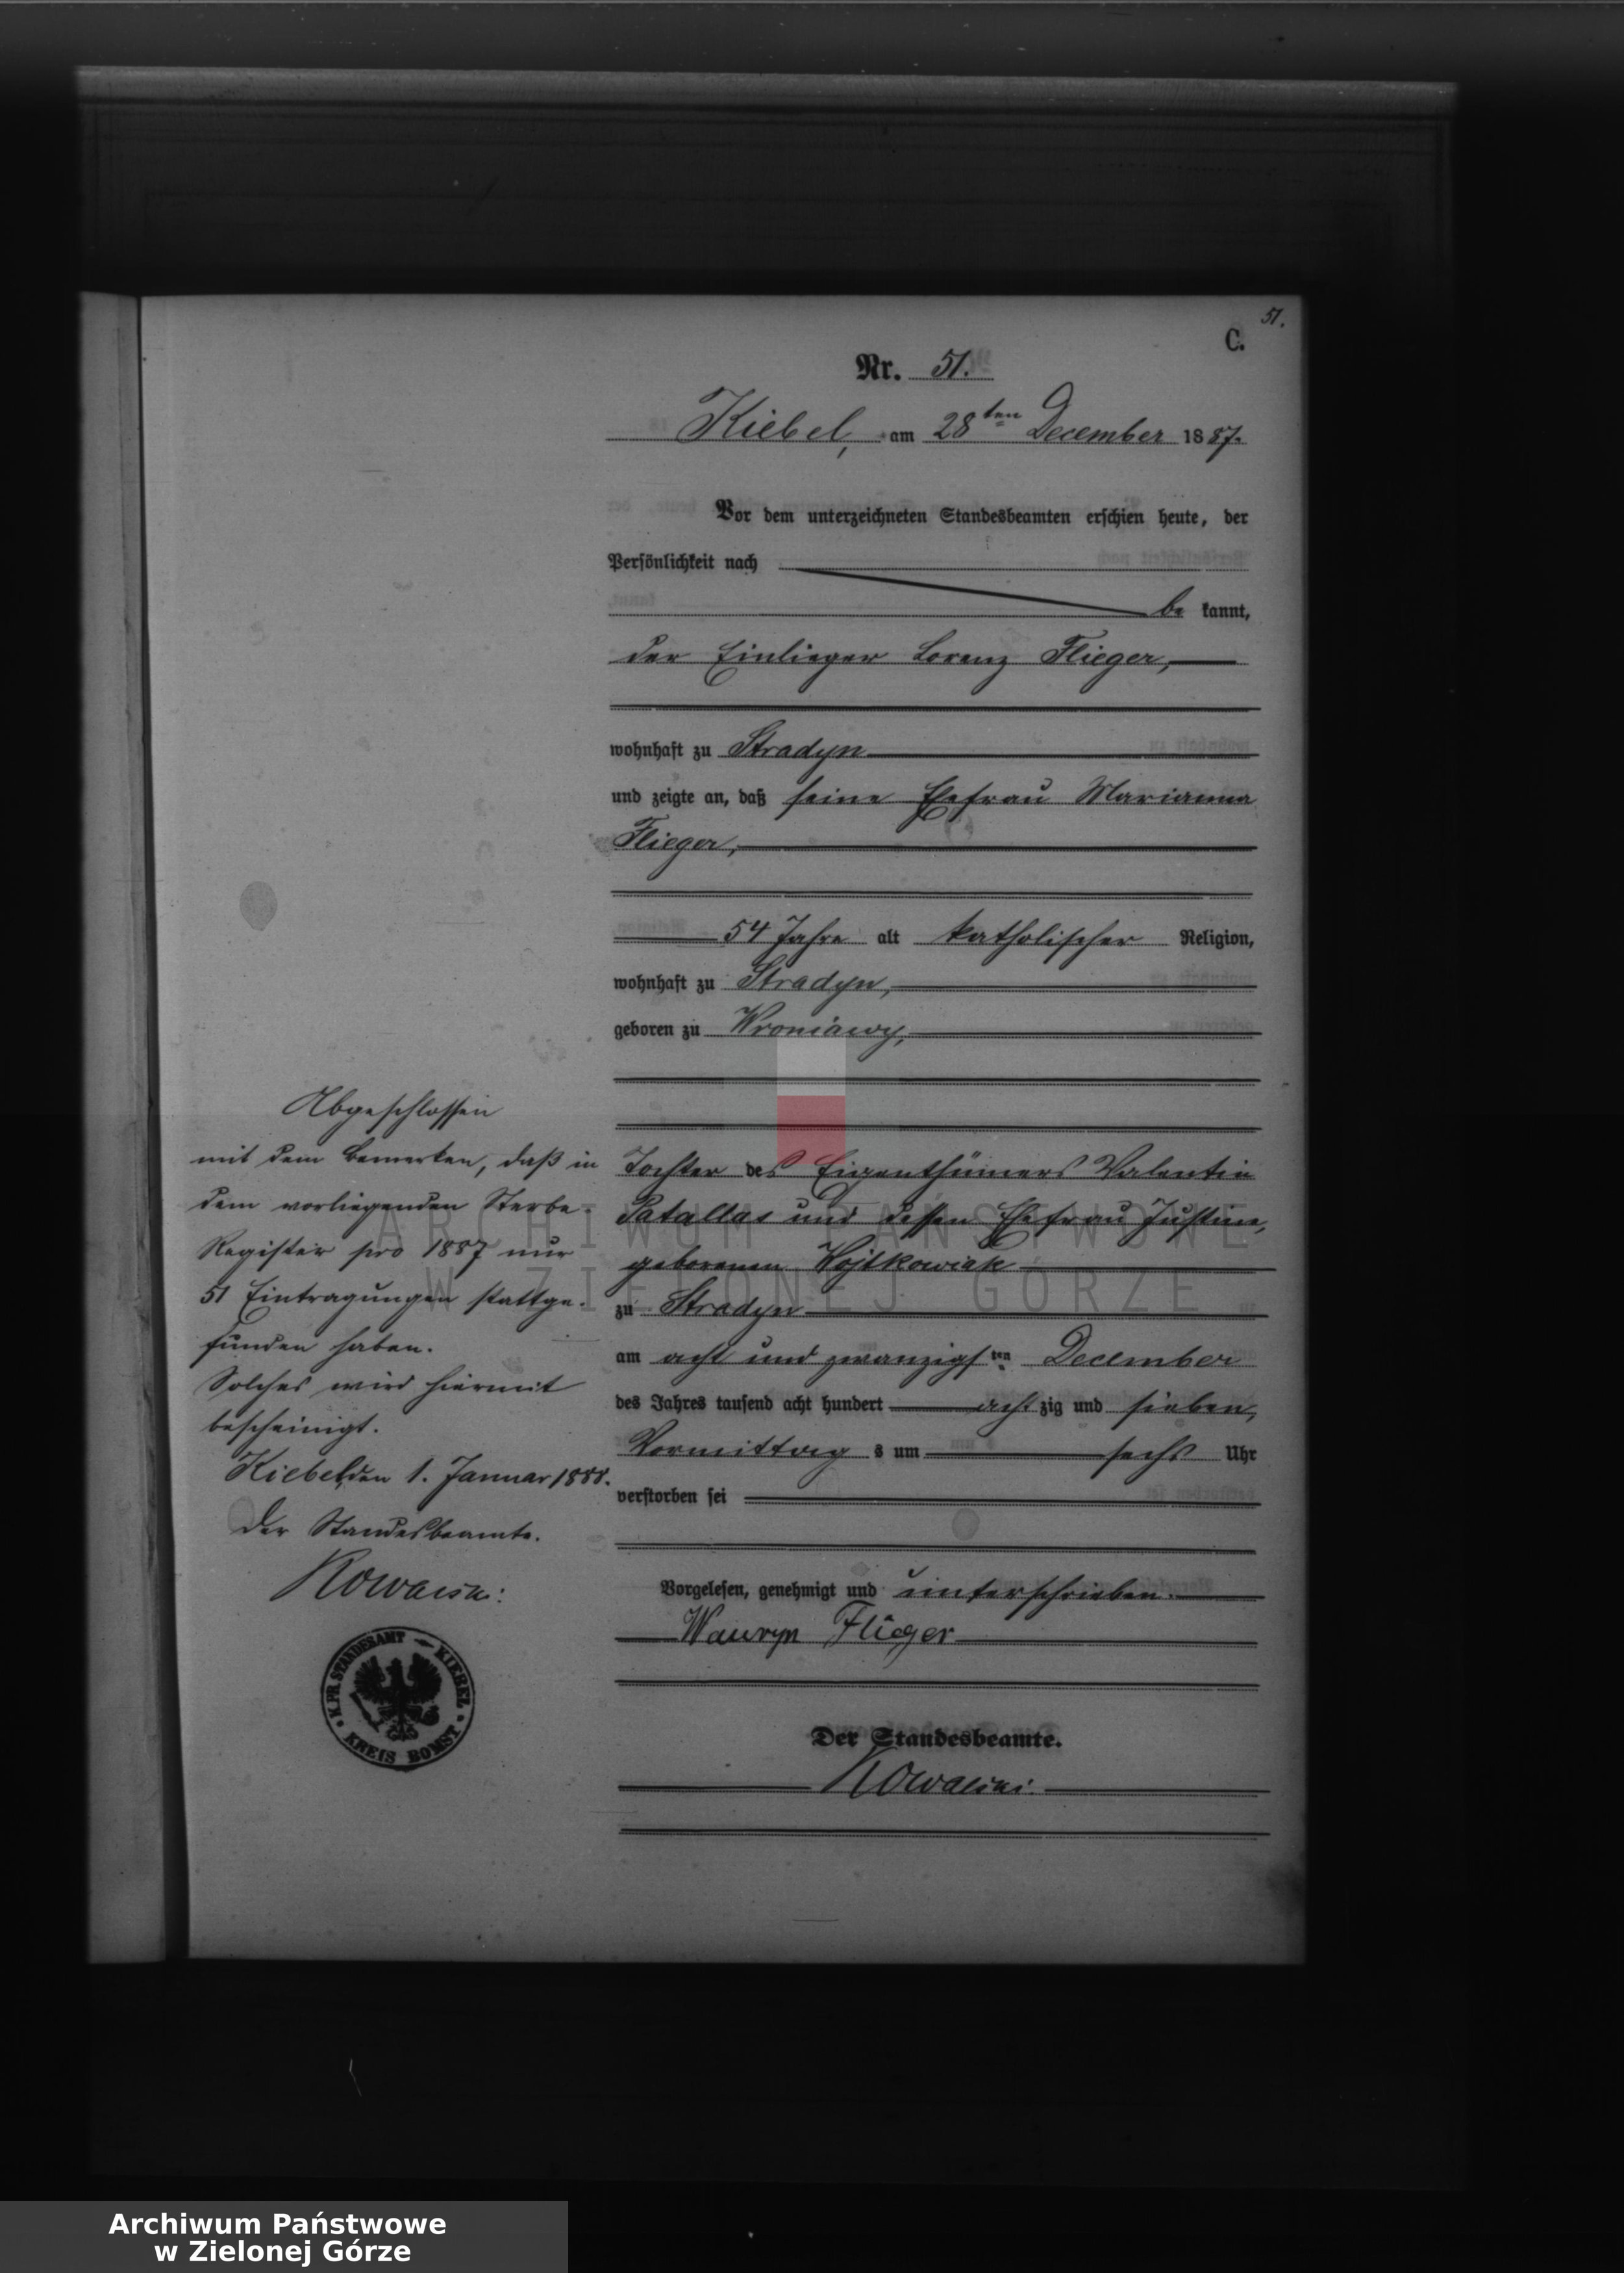 51.
C.
Nr. 51.
Kiebel, am 28ten December 1887.
Vor dem unterzeichneten Standesbeamten erschien heute, der
Persönlichkeit nach
be kannt,
der Einlieger Lorenz Flieger,
wohnhaft zu Stradyn
und zeigte an, daß seine Ehefrau Marianna
Flieger,
54 Jahre alt katholischer Religion,
wohnhaft zu Stradyn,
geboren zu Wroniawy,
Tochter des Eigenthümers Valentin
Patallas und dessen Ehefrau Justine,
geborenen Wojtkowiak
zu Stradyn
am acht und zwanzigsten December
des Jahres tausend acht hundert acht zig und sieben,
Vormittag s um sechs Uhr
verstorben sei
Vorgelesen, genehmigt und unterschrieben.
Wawryn Flieger
Der Standesbeamte.
Kowalski.
Abgeschlossen
mit dem Bemerken, daß in
dem vorliegenden Sterbe-
Register pro 1887 nur
51 Eintragungen stattge-
funden haben.
Solches wird hiermit
bescheinigt.
Kiebel, den 1. Januar 1888.
Der Standesbeamte.
Kowalski.
K. PR. STANDESAMT KIEBEL
KREIS BOMST
ARCHIWUM PAŃSTWOWE
W ZIELONEJ GÓRZE
Archiwum Państwowe
w Zielonej Górze